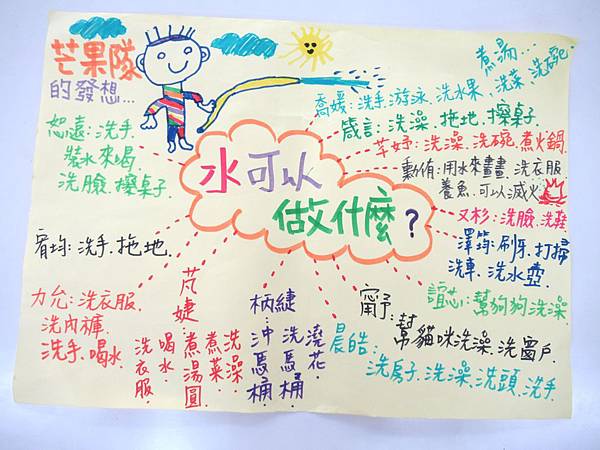 芒果隊
的發想...
水可以
做什麼?
煮湯...
喬媛:洗手.游泳.洗水果.洗菜.洗碗.
箴言:洗澡.拖地.擦桌子.
芊妤:洗澡.洗碗.煮火鍋.
勳侑:用水來畫畫.洗衣服
養魚.可以滅火
又杉:洗臉.洗鞋
澤筠:刷牙.打掃
洗車.洗水壺
誼芯:幫狗狗洗澡
甯予:
幫貓咪洗澡.洗窗戶.
晨皓:
洗房子.洗澡.洗頭.洗手.
柄緁:
澆花.
洗馬桶.
沖馬桶.
芃婕:
洗澡
煮菜.
煮湯圓.
喝水
洗衣服.
力允:洗衣服.
洗內褲
洗手.喝水
宥均:洗手.拖地.
恕遠:洗手.
裝水來喝
洗臉.擦桌子